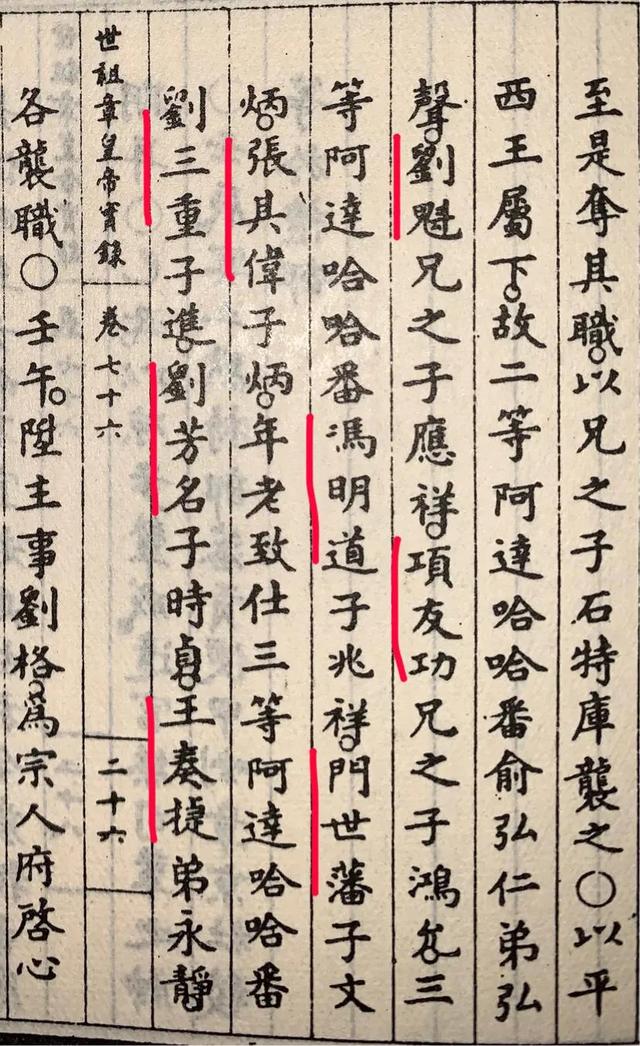 至是奪其職以兄之子石特庫襲之○以平
西王屬下故二等阿達哈哈番俞弘仁弟弘
聲劉魁兄之子應祥項友功兄之子鴻允三
等阿達哈哈番馮明道子兆祥門世藩子文
炳張其偉子炳年老致仕三等阿達哈哈番
劉三重子進劉芳名子時貞王奏捷弟永靜
世祖章皇帝實錄 卷七十六 二十六
各襲職○壬午陞主事劉格為宗人府啓心